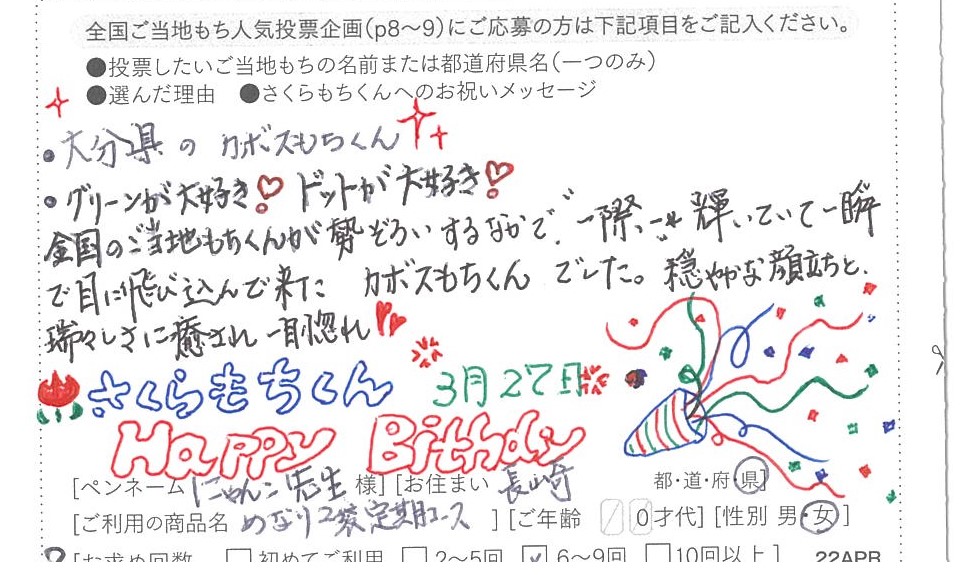 全国ご当地もち人気投票企画(p8〜9)にご応募の方は下記項目をご記入ください。
●投票したいご当地もちの名前または都道府県名(一つのみ)
●選んだ理由 ●さくらもちくんへのお祝いメッセージ
・大分県の カボスもちくん
・グリーンが大好き ドットが大好き
全国のご当地もちくんが勢ぞろいするなかで、一際 輝いていて一瞬
で目に飛び込んで来た カボスもちくん でした。穏やかな顔立ちと、
瑞々しさに癒され 一目惚れ
さくらもちくん 3月27日
Happy Bithday
[ペンネーム にゃんこ先生 様] [お住まい 長崎 都・道・府・県]
[ご利用の商品名 めなり2袋定期コース ] [ご年齢 0才代] [性別 男・女]
[お求め回数 初めてご利用 2〜5回 6〜9回 10回以上] 22APR